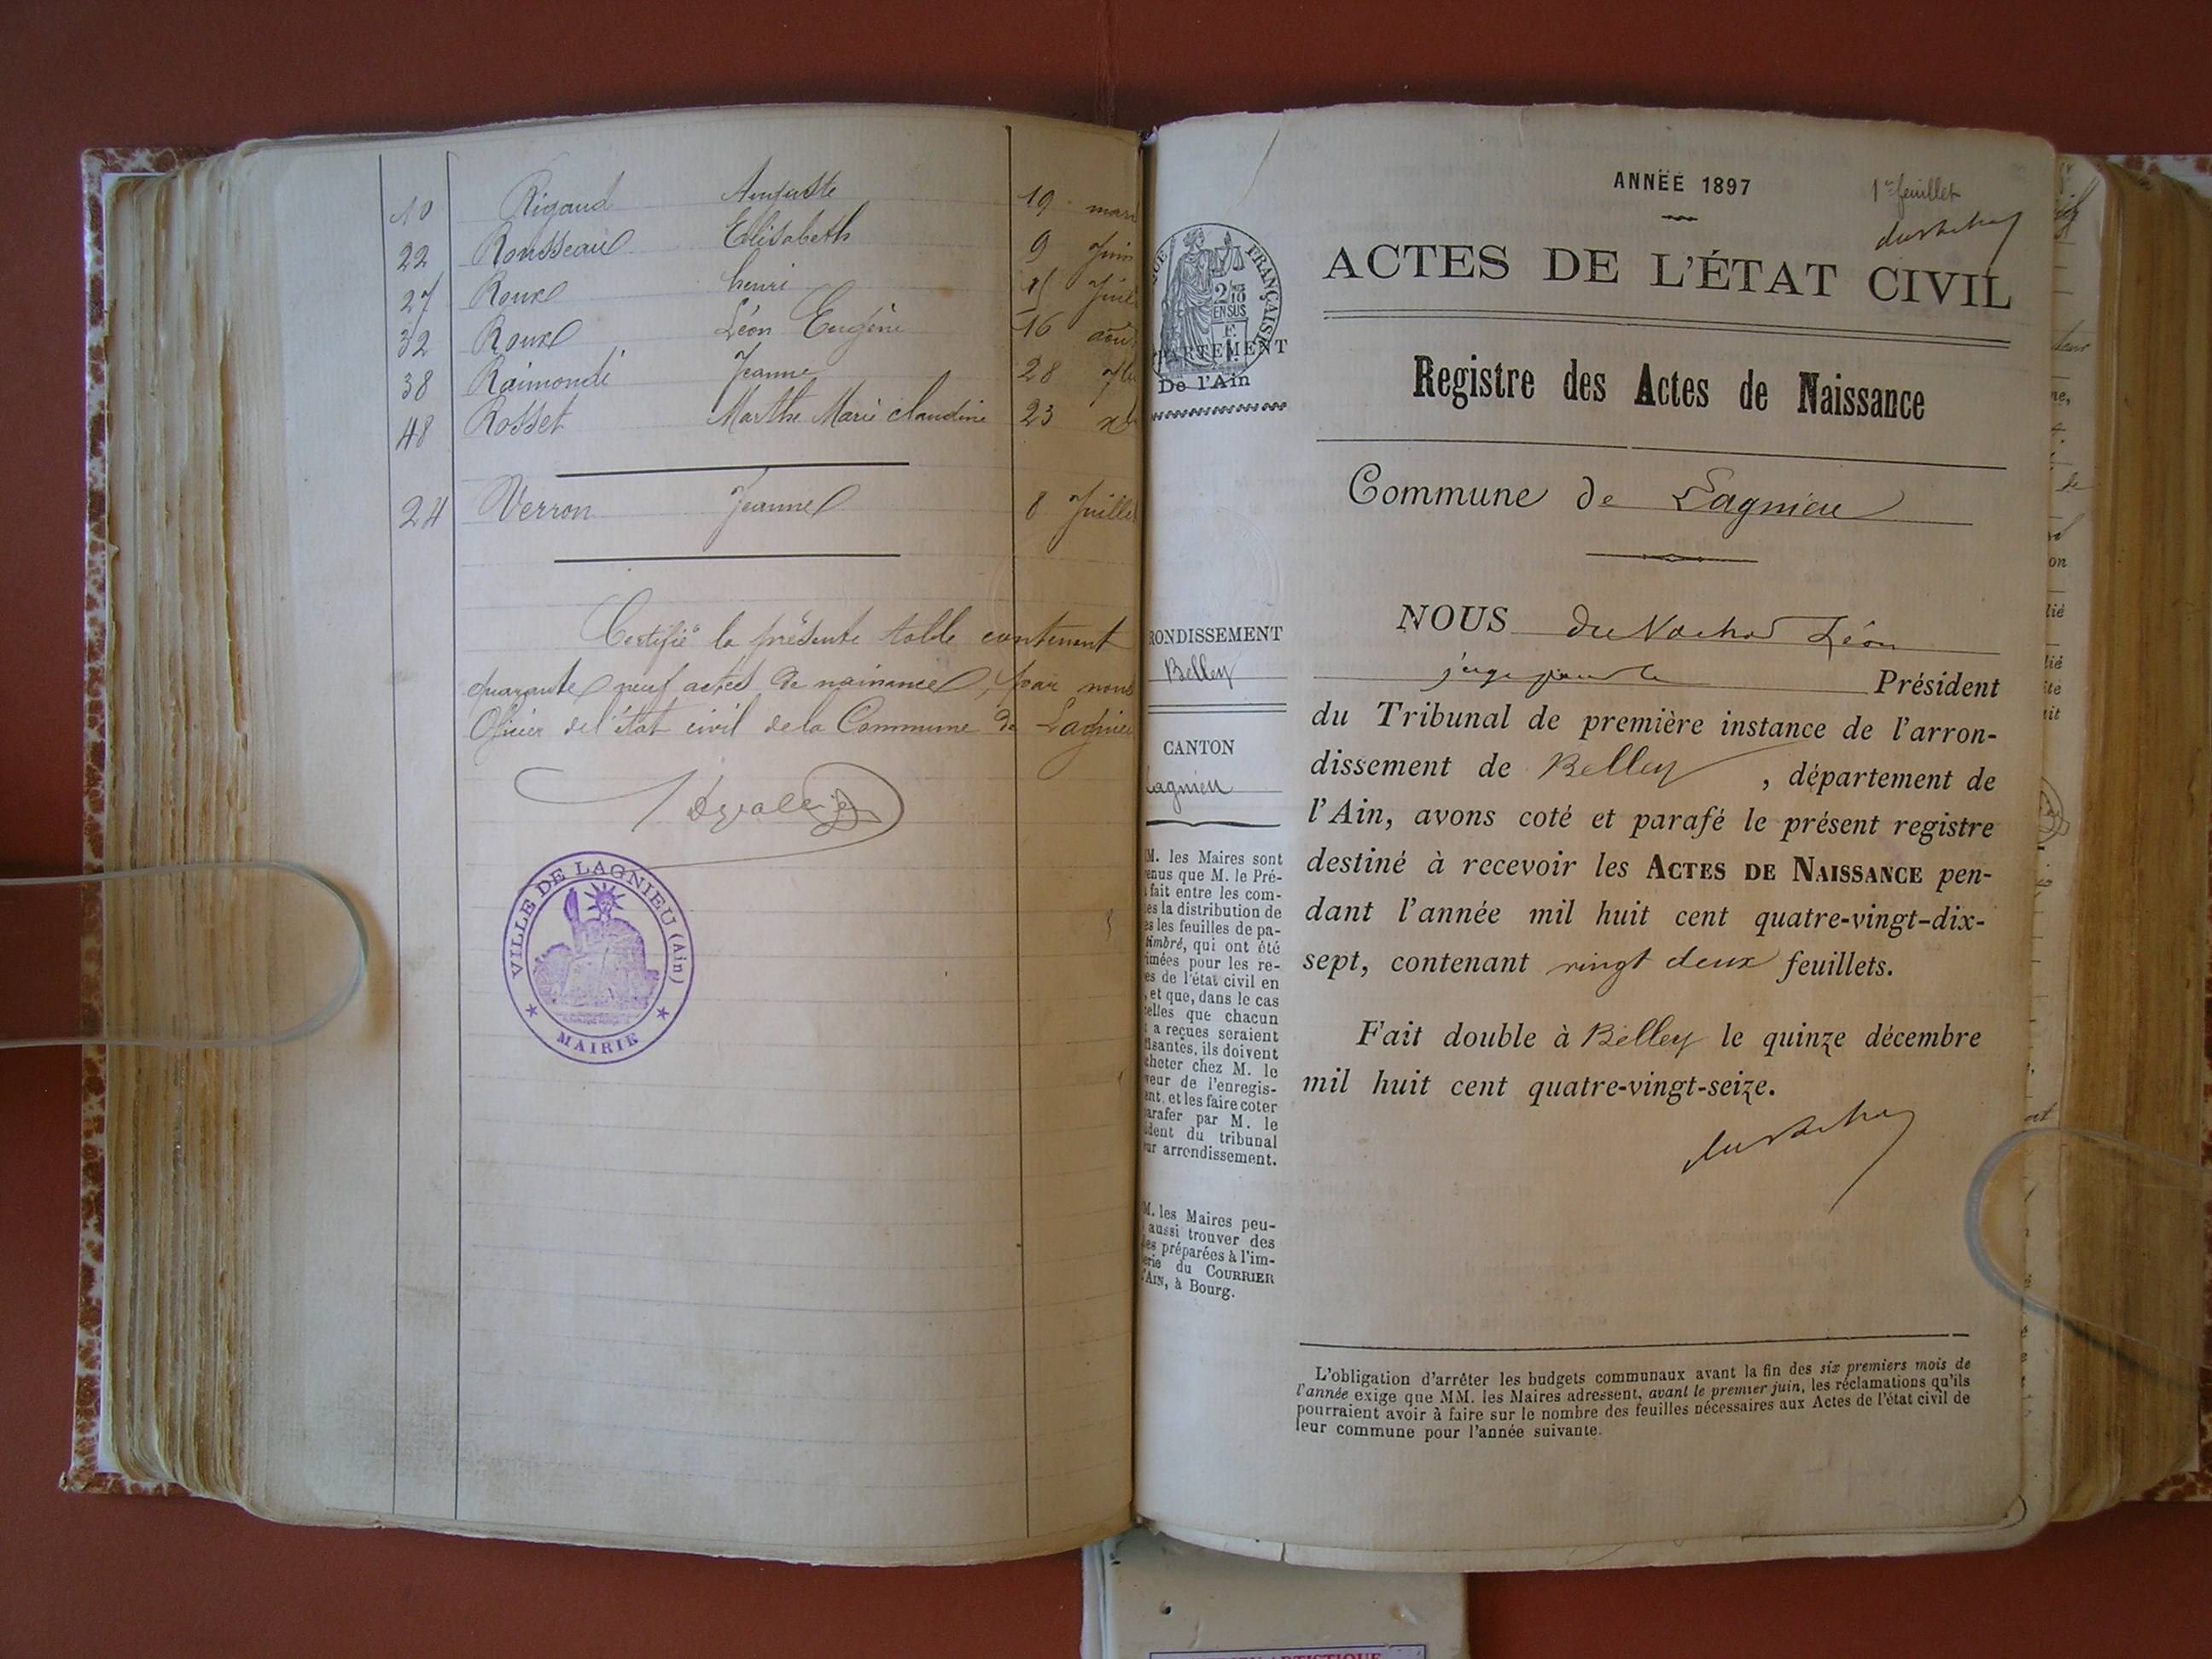 10 Rigaud Auguste 19 mars
22 Rousseau Elisabeth 9 Juin
27 Roux henri 15 Juil
32 Roux Léon Eugène 16 aoû
38 Raimondi Jeanne 28 7b
48 Rosset Marthe Marie Claudine 23 xb
24 Verron Jeanne 8 Juillet
Certifié la présente table contenant
quarante neuf actes de naissance, par nous
Officier de l'état civil de la Commune de Lagnieu
VILLE DE LAGNIEU (Ain)
MAIRIE
ANNÉE 1897
1er feuillet
ACTES DE L'ÉTAT CIVIL
Registre des Actes de Naissance
Commune de Lagnieu
NOUS Léon
juge Président
du Tribunal de première instance de l'arron-
dissement de Belley, département de
l'Ain, avons coté et parafé le présent registre
destiné à recevoir les ACTES DE NAISSANCE pen-
dant l'année mil huit cent quatre-vingt-dix-
sept, contenant vingt deux feuillets.
Fait double à Belley le quinze décembre
mil huit cent quatre-vingt-seize.
L'obligation d'arrêter les budgets communaux avant la fin des six premiers mois de
l'année exige que MM. les Maires adressent, avant le premier juin, les réclamations qu'ils
pourraient avoir à faire sur le nombre des feuilles nécessaires aux Actes de l'état civil de
leur commune pour l'année suivante.
QUE FRANÇAISE
2/10 EN SUS
PARTEMENT
De l'Ain
RONDISSEMENT
Belley
CANTON
Lagnieu
M. les Maires sont
enus que M. le Pré-
fait entre les com-
es la distribution de
es les feuilles de pa-
timbré, qui ont été
imées pour les re-
es de l'état civil en
, et que, dans le cas
celles que chacun
t a reçues seraient
isantes, ils doivent
cheter chez M. le
veur de l'enregis-
ent, et les faire coter
arafer par M. le
ident du tribunal
ur arrondissement.
M. les Maires peu-
aussi trouver des
les préparées à l'im-
erie du COURRIER
'AIN, à Bourg.